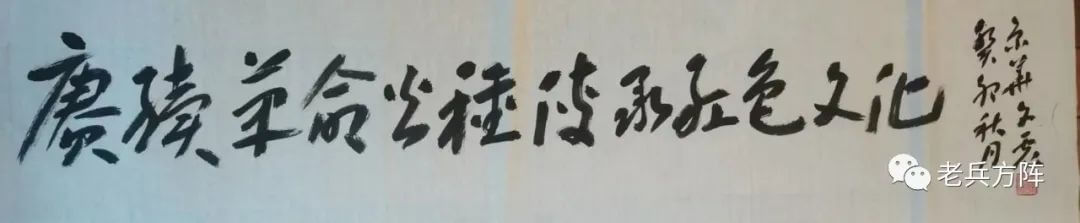 赓续革命火种传承红色文化
癸卯秋月
京华文霞
老兵方阵